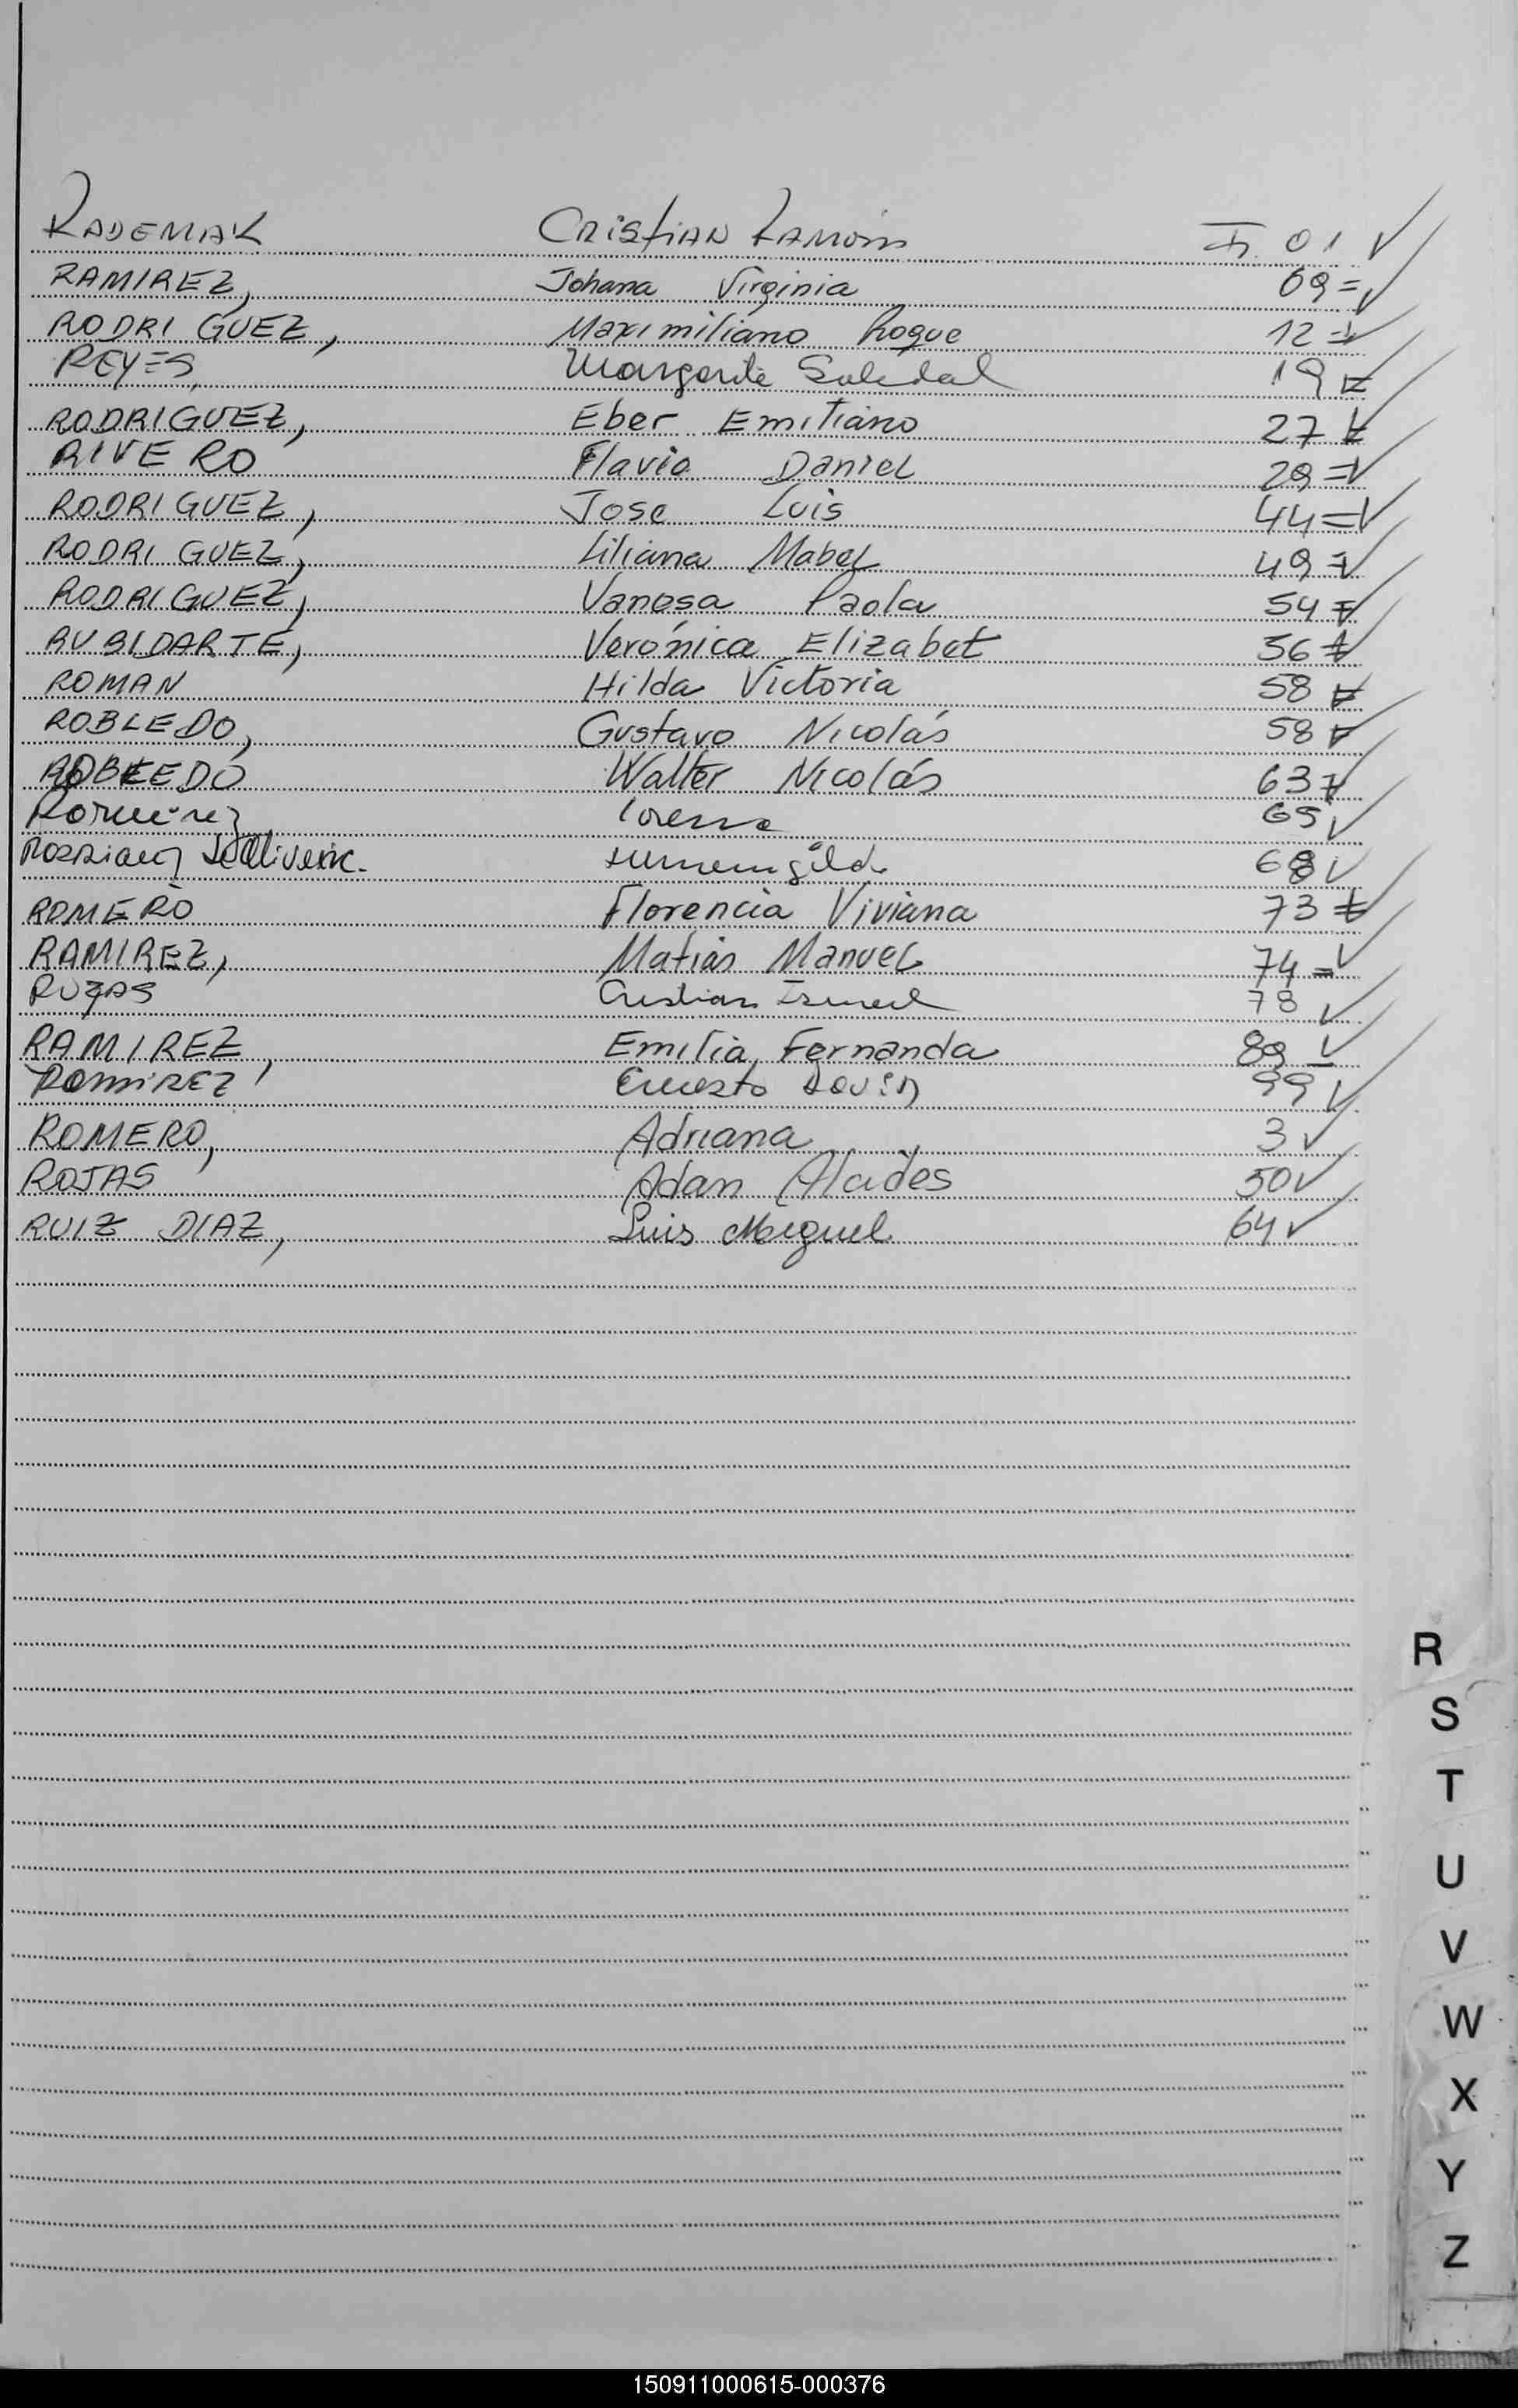 RADEMAK Cristian Ramón F. 01 ✓
RAMIREZ, Johana Virginia 09 = ✓
RODRIGUEZ, Maximiliano Roque 12 = ✓
REYES, Margarita Soledad 19 = ✓
RODRIGUEZ, Eber Emiliano 27 = ✓
RIVERO Flavio Daniel 29 = ✓
RODRIGUEZ, Jose Luis 44 = ✓
RODRIGUEZ, Liliana Mabel 49 = ✓
RODRIGUEZ, Vanesa Paola 54 = ✓
RUBIDARTE, Verónica Elizabet 56 = ✓
ROMAN Hilda Victoria 58 = ✓
ROBLEDO, Gustavo Nicolás 58 = ✓
ROBLEDO Walter Nicolás 63 = ✓
Ramírez Lorena 65 ✓
68 ✓
ROMERO Florencia Viviana 73 = ✓
RAMIREZ, Matias Manuel 74 = ✓
RUZAS Cristian Ismael 78 ✓
RAMIREZ, Emilia Fernanda 89 = ✓
RAMIREZ Ernesto David 99 ✓
ROMERO, Adriana 3 ✓
ROJAS Adan Alcides 50 ✓
RUIZ DIAZ, Luis Miguel 64 ✓
R
S
T
U
V
W
X
Y
Z
150911000615-000376